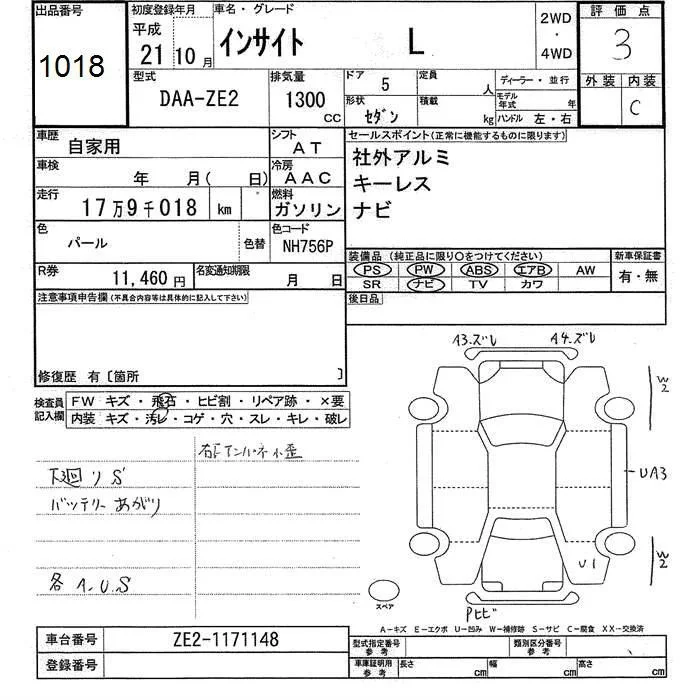 出品番号
1018
初度登録年月
平成
21 10 月
車名・グレード
インサイト L
2WD
・
4WD
評価点
3
外装 内装
C
型式
DAA-ZE2
排気量
1300
CC
ドア
5
定員
人
形状
セダン
積載
kg
ディーラー・並行
モデル年式 年
ハンドル 左・右
車歴
自家用
シフト
AT
車検
年 月( 日)
冷房
AAC
走行
17万9千018 km
燃料
ガソリン
色
パール
色替
色コード
NH756P
R券
11,460 円
名変通知期限
月 日
セールスポイント(正常に機能するものに限ります)
社外アルミ
キーレス
ナビ
装備品 (純正品に限り○をつけてください)
PS PW ABS エアB AW
SR ナビ TV カワ
新車保証書
有・無
後日品
注意事項申告欄(不具合内容等は具体的に記入して下さい)
修復歴 有〔箇所 〕
検査員
記入欄
FW キズ・飛石・ヒビ割・リペア跡・×要
内装 キズ・汚レ・コゲ・穴・スレ・キレ・破レ
下廻り S
バッテリーあがり
各 A.U.S
A3.ズレ A4.ズレ
W2
UA3
U1
W2
スペア
Pヒビ
A-キズ E-エクボ U-凹み W-補修跡 S-サビ C-腐食 XX-交換済
車台番号
ZE2-1171148
登録番号
型式指定番号
参考
類別区分番号
参考
車庫証明用
参考
長さ cm 幅 cm 高さ cm